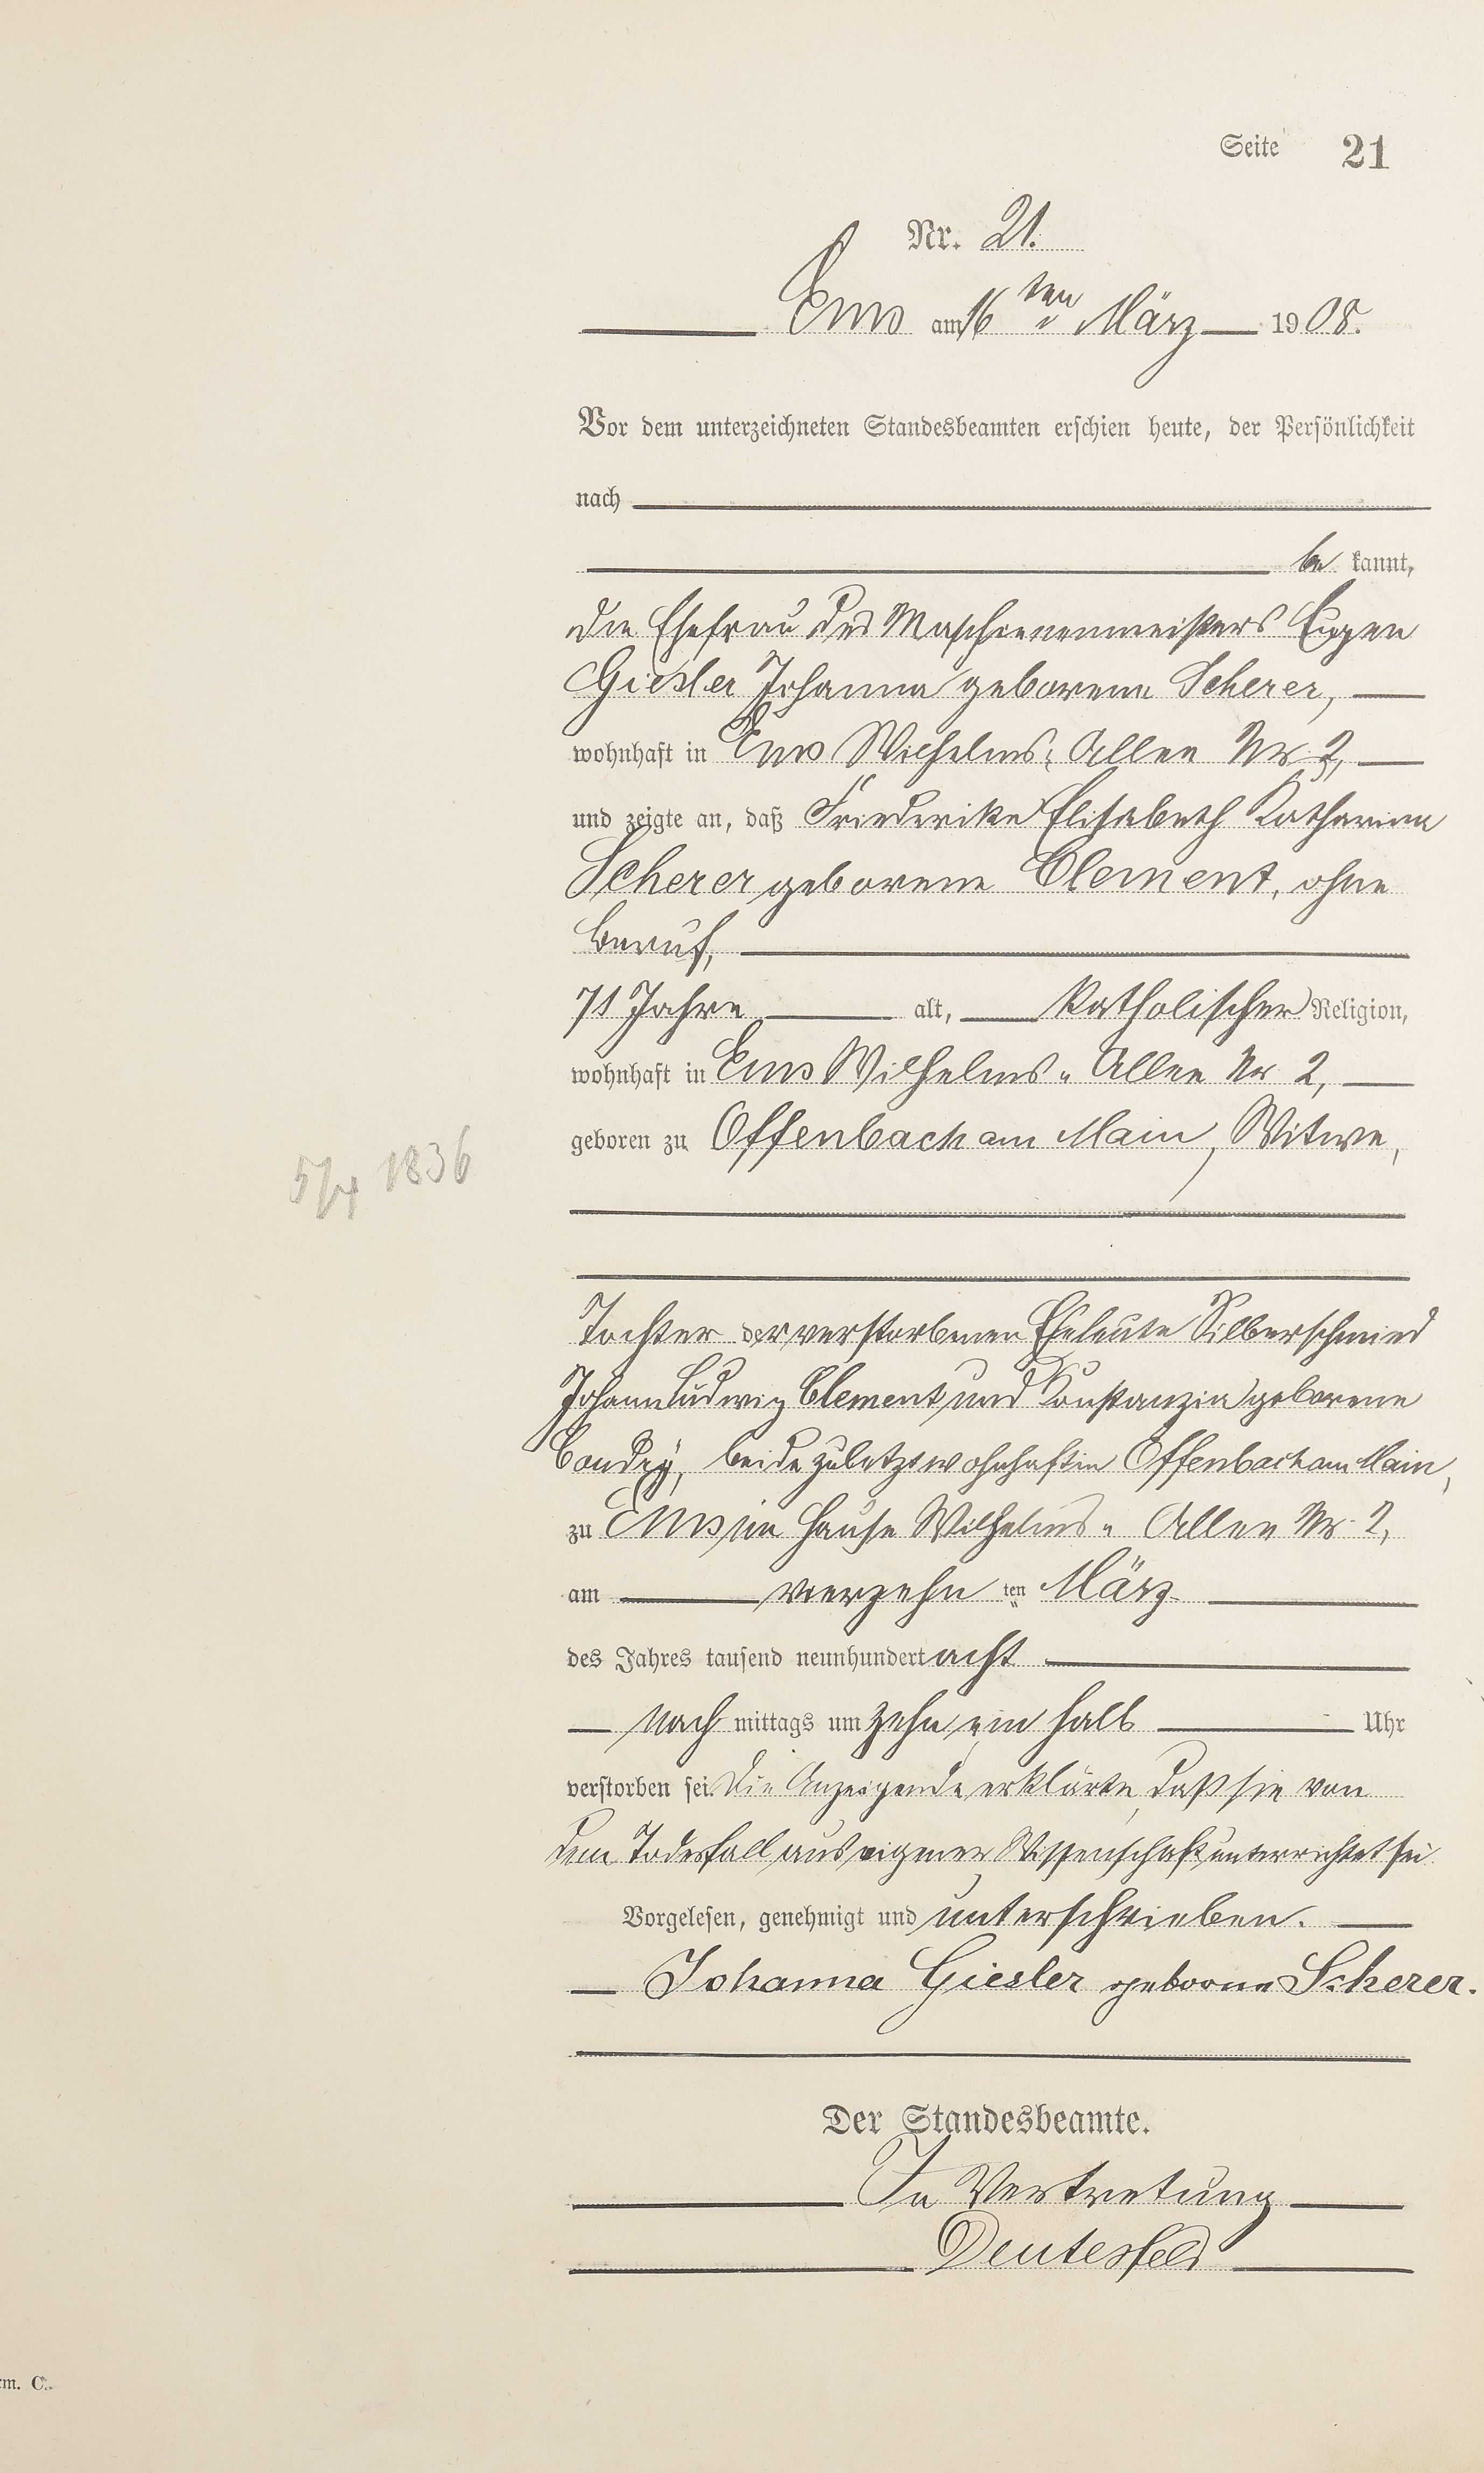 Seite 21
Nr. 21.
Ems am 16ten März 1908.
Vor dem unterzeichneten Standesbeamten erschien heute, der Persönlichkeit
nach
be kannt,
die Ehefrau des Maschienenmeisters Eugen
Giesler Johanna geborene Scherer,
wohnhaft in Ems Wilhelms-Allee Nr 2,
und zeigte an, daß Friederike Elisabeth Katharina
Scherer geborene Clement, ohne
Beruf,
71 Jahre alt, Katholischer Religion,
wohnhaft in Ems Wilhelms-Allee Nr 2,
geboren zu Offenbach am Main, Witwe,
1836
Tochter der verstorbenen Eheleute Silberschmied
Johann Ludwig Clement und Konstanzia geborene
beide zuletzt wohnhaft in Offenbach am Main,
zu Ems im Hause Wilhelms-Allee Nr. 2,
am vierzehn ten März
des Jahres tausend neunhundert acht
nach mittags um zehn ein halb Uhr
verstorben sei. Die Anzeigende erklärte, daß sie von
dem Todesfall aus eigener Wissenschaft unterrichtet sei.
Vorgelesen, genehmigt und unterschrieben.
Johanna Giesler geborne Scherer.
Der Standesbeamte.
In Vertretung
Deutesfeld
rm. C.